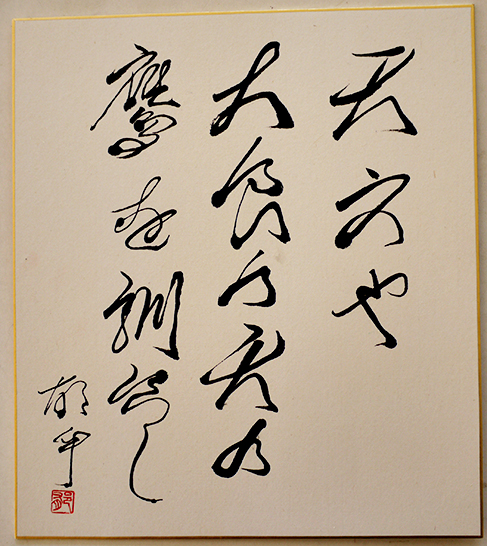 天文や
大食の天の
鷹を馴らし
郁乎